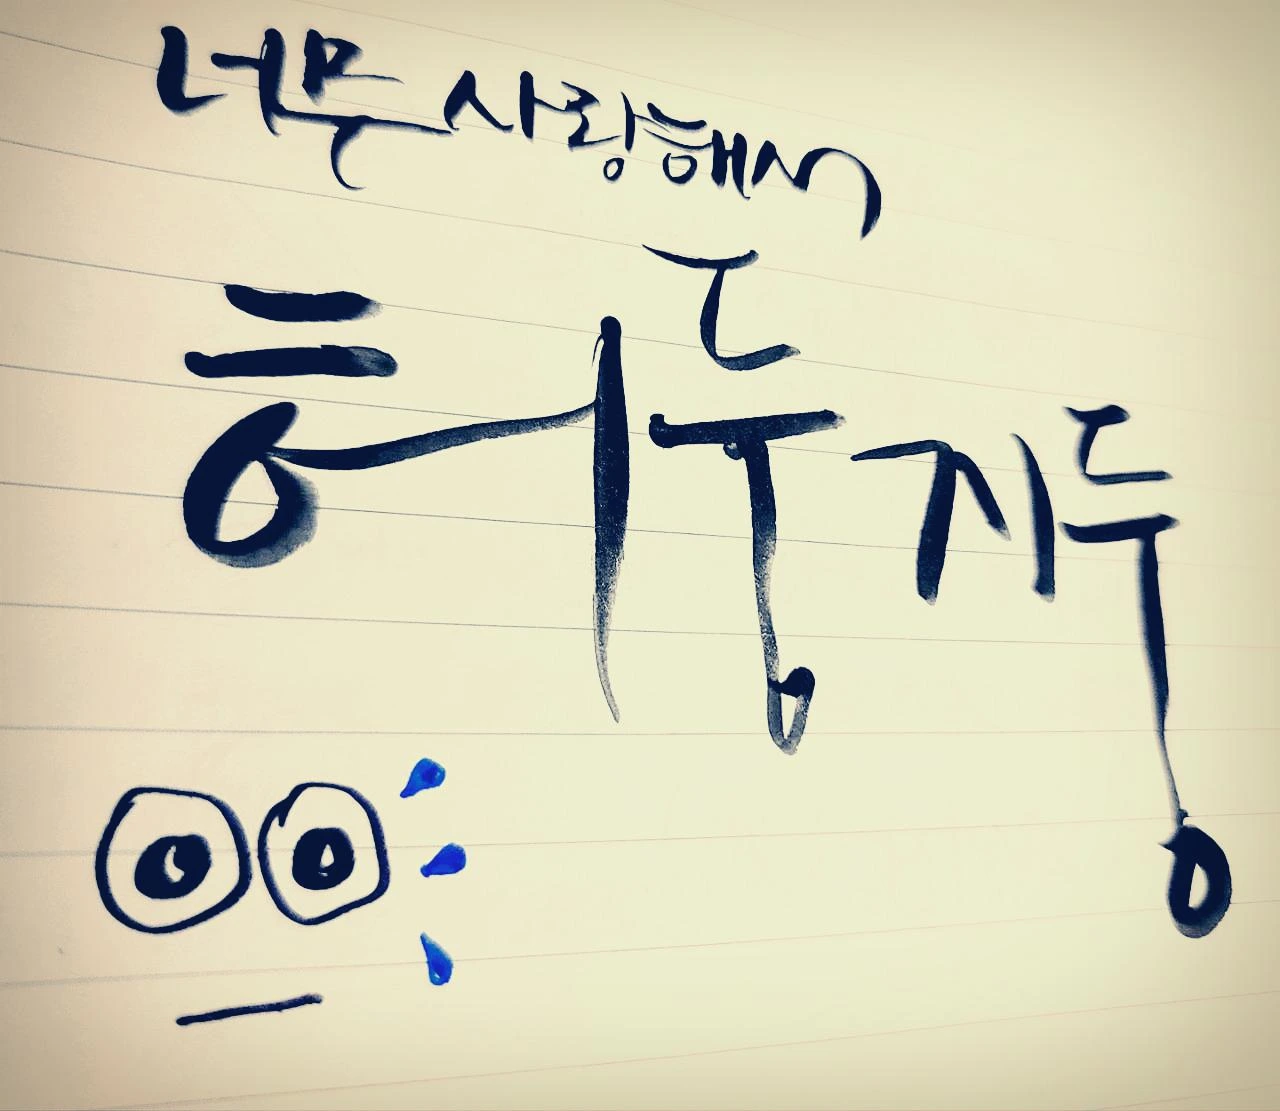 너무 사랑해서
허둥지둥